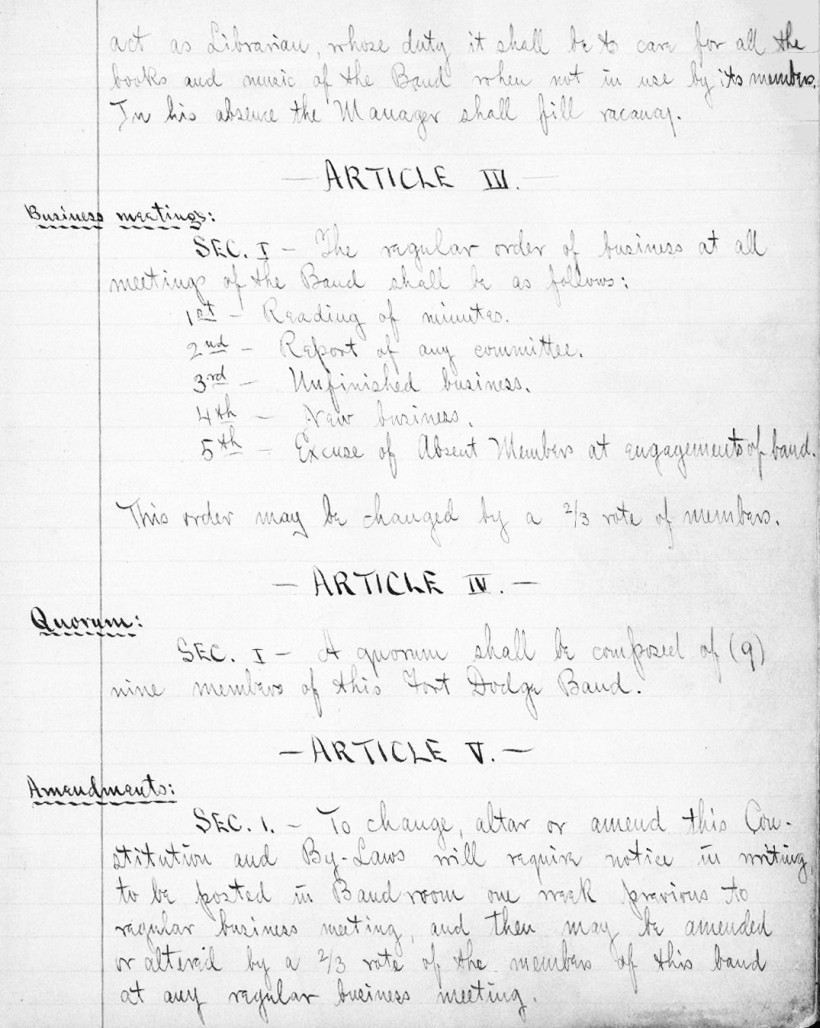 act as Librarian, whose duty it shall be to care for all the
books and music of the Band when not in use by its members.
In his absence the Manager shall fill vacancy.
— ARTICLE III. —
Business meetings:
SEC. I — The regular order of business at all
meetings of the Band shall be as follows:
1st — Reading of minutes.
2nd — Report of any committee.
3rd — Unfinished business.
4th — New business.
5th — Excuse of Absent Members at engagements of band.
This order may be changed by a 2/3 vote of members.
— ARTICLE IV. —
Quorum:
SEC. I — A quorum shall be composed of (9)
nine members of this Fort Dodge Band.
— ARTICLE V. —
Amendments:
SEC. 1. — To change, altar or amend this Con-
stitution and By-Laws will require notice in writing,
to be posted in Band room one week previous to
regular business meeting, and then may be amended
or altered by a 2/3 vote of the members of this band
at any regular business meeting.